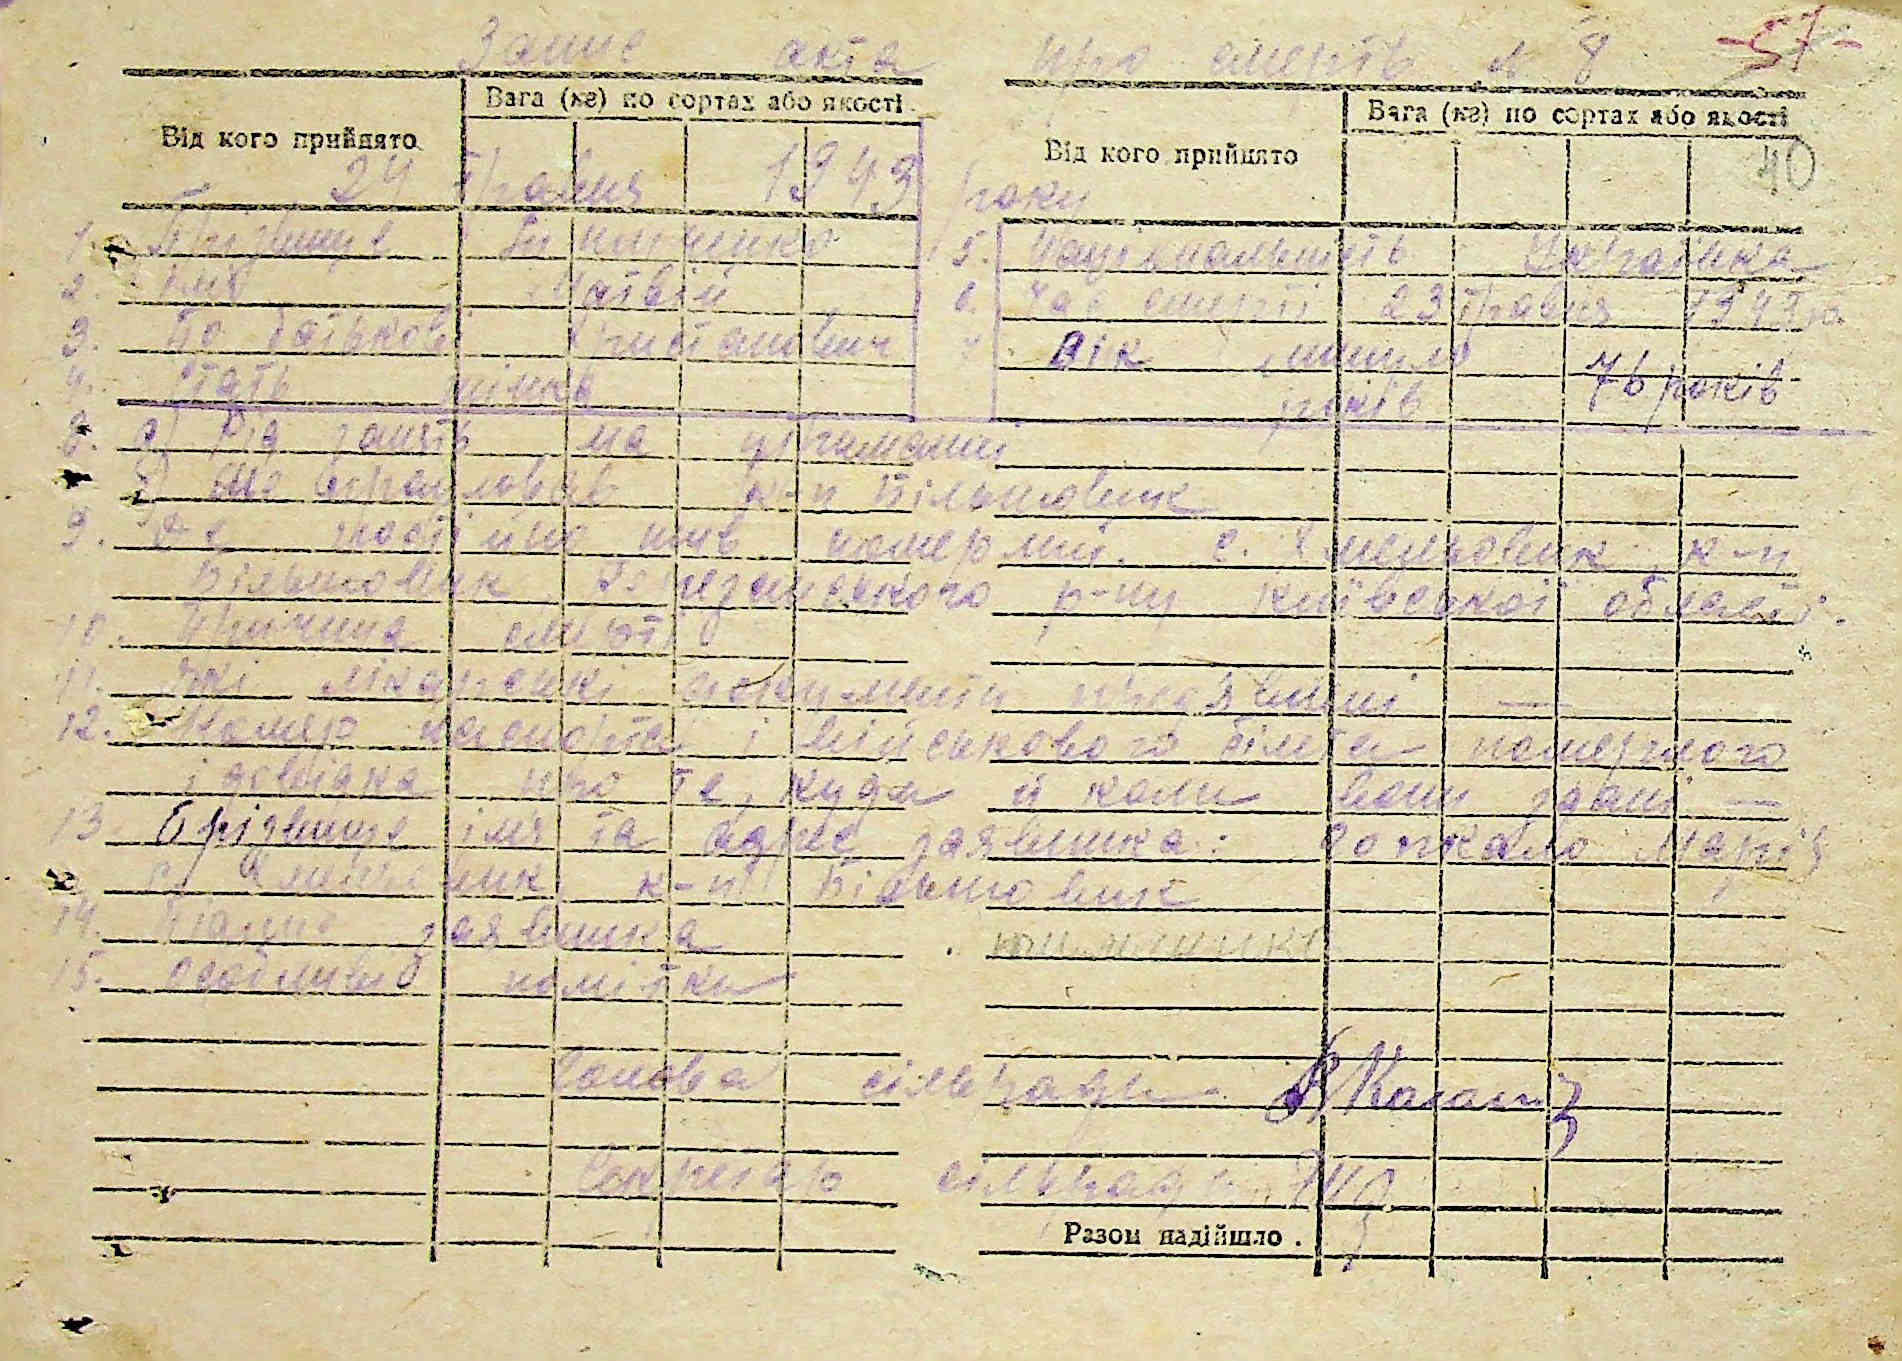 Запис акта про смерть № 8 -57-
Від кого прийнято Вага (кг) по сортах або якості Від кого прийнято Вага (кг) по сортах або якості
40
24 травня 1943 року
1. Прізвище
2. Імя Матвій
3. По батькові
4. Стать
5. Національність Українка
6. Час смерті 23 травня 1943 р.
7. Вік минуло років 76 років
8. а) Рід занять на утриманні
б) Де працював к-п Більшовик
9. Де постійно жив померлий. с. к-п
Більшовик р-ну Київської області.
10. Причина смерті
11. Які лікарські документи пред'явлені —
12. Номер паспорта і військового білета померлого
і довідка про те, куди й коли вони здані —
13. Прізвище імя та адрес заявника: Марія
с. к-п Більшовик
14. Підпис заявника
15. Особливі помітки
Голова сільради
Секретар сільради
Разом надійшло .